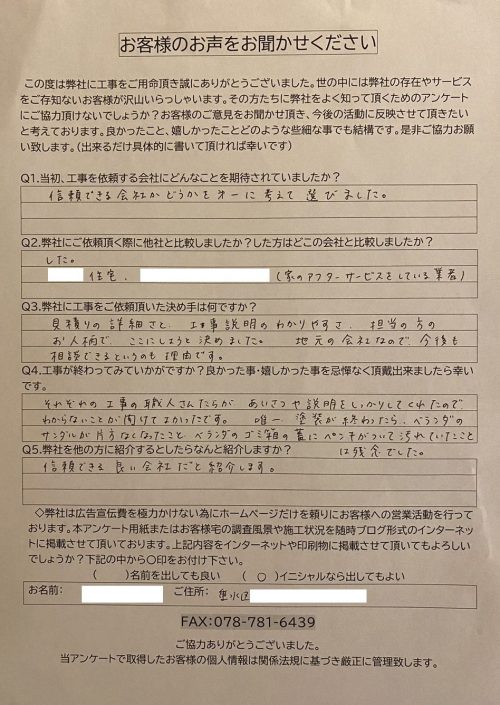 お客様のお声をお聞かせください
この度は弊社に工事をご用命頂き誠にありがとうございました。世の中には弊社の存在やサービス
をご存知ないお客様が沢山いらっしゃいます。その方たちに弊社をよく知って頂くためのアンケート
にご協力頂けないでしょうか？お客様のご意見をお聞かせ頂き、今後の活動に反映させて頂きたい
と考えております。良かったこと、嬉しかったことどのような些細な事でも結構です。是非ご協力お願
い致します。（出来るだけ具体的に書いて頂ければ幸いです）
Q1.当初、工事を依頼する会社にどんなことを期待されていましたか？
信頼できる会社かどうかを第一に考えて選びました。
Q2.弊社にご依頼頂く際に他社と比較しましたか？した方はどこの会社と比較しましたか？
した。
住宅、（家のアフターサービスをしている業者）
Q3.弊社に工事をご依頼頂いた決め手は何ですか？
見積りの詳細さと、工事説明のわかりやすさ、担当の方の
お人柄で、ここにしようと決めました。地元の会社なので、今後も
相談できるというのも理由です。
Q4.工事が終わってみていかがですか？良かった事・嬉しかった事を忌憚なく頂戴出来ましたら幸い
です。
それぞれの工事の職人さんたちが、あいさつや説明をしっかりしてくれたので
わからないことが聞けてよかったです。唯一、塗装が終わったら、ベランダの
サンダルが片方なくなったこと、ベランダのゴミ箱の蓋にペンキがついて汚れていたこと
は残念でした。
Q5.弊社を他の方に紹介するとしたらなんと紹介しますか？
信頼できる良い会社だと紹介します。
◇弊社は広告宣伝費を極力かけない為にホームページだけを頼りにお客様への営業活動を行って
おります。本アンケート用紙またはお客様宅の調査風景や施工状況を随時ブログ形式のインターネッ
トに掲載させて頂いております。上記内容をインターネットや印刷物に掲載させて頂いてもよろしい
でしょうか？下記の中から〇印をお付け下さい。
（　　）名前を出しても良い　（　○　）イニシャルなら出してもよい
お名前：　ご住所：垂水区
FAX:078-781-6439
ご協力ありがとうございました。
当アンケートで取得したお客様の個人情報は関係法規に基づき厳正に管理致します。